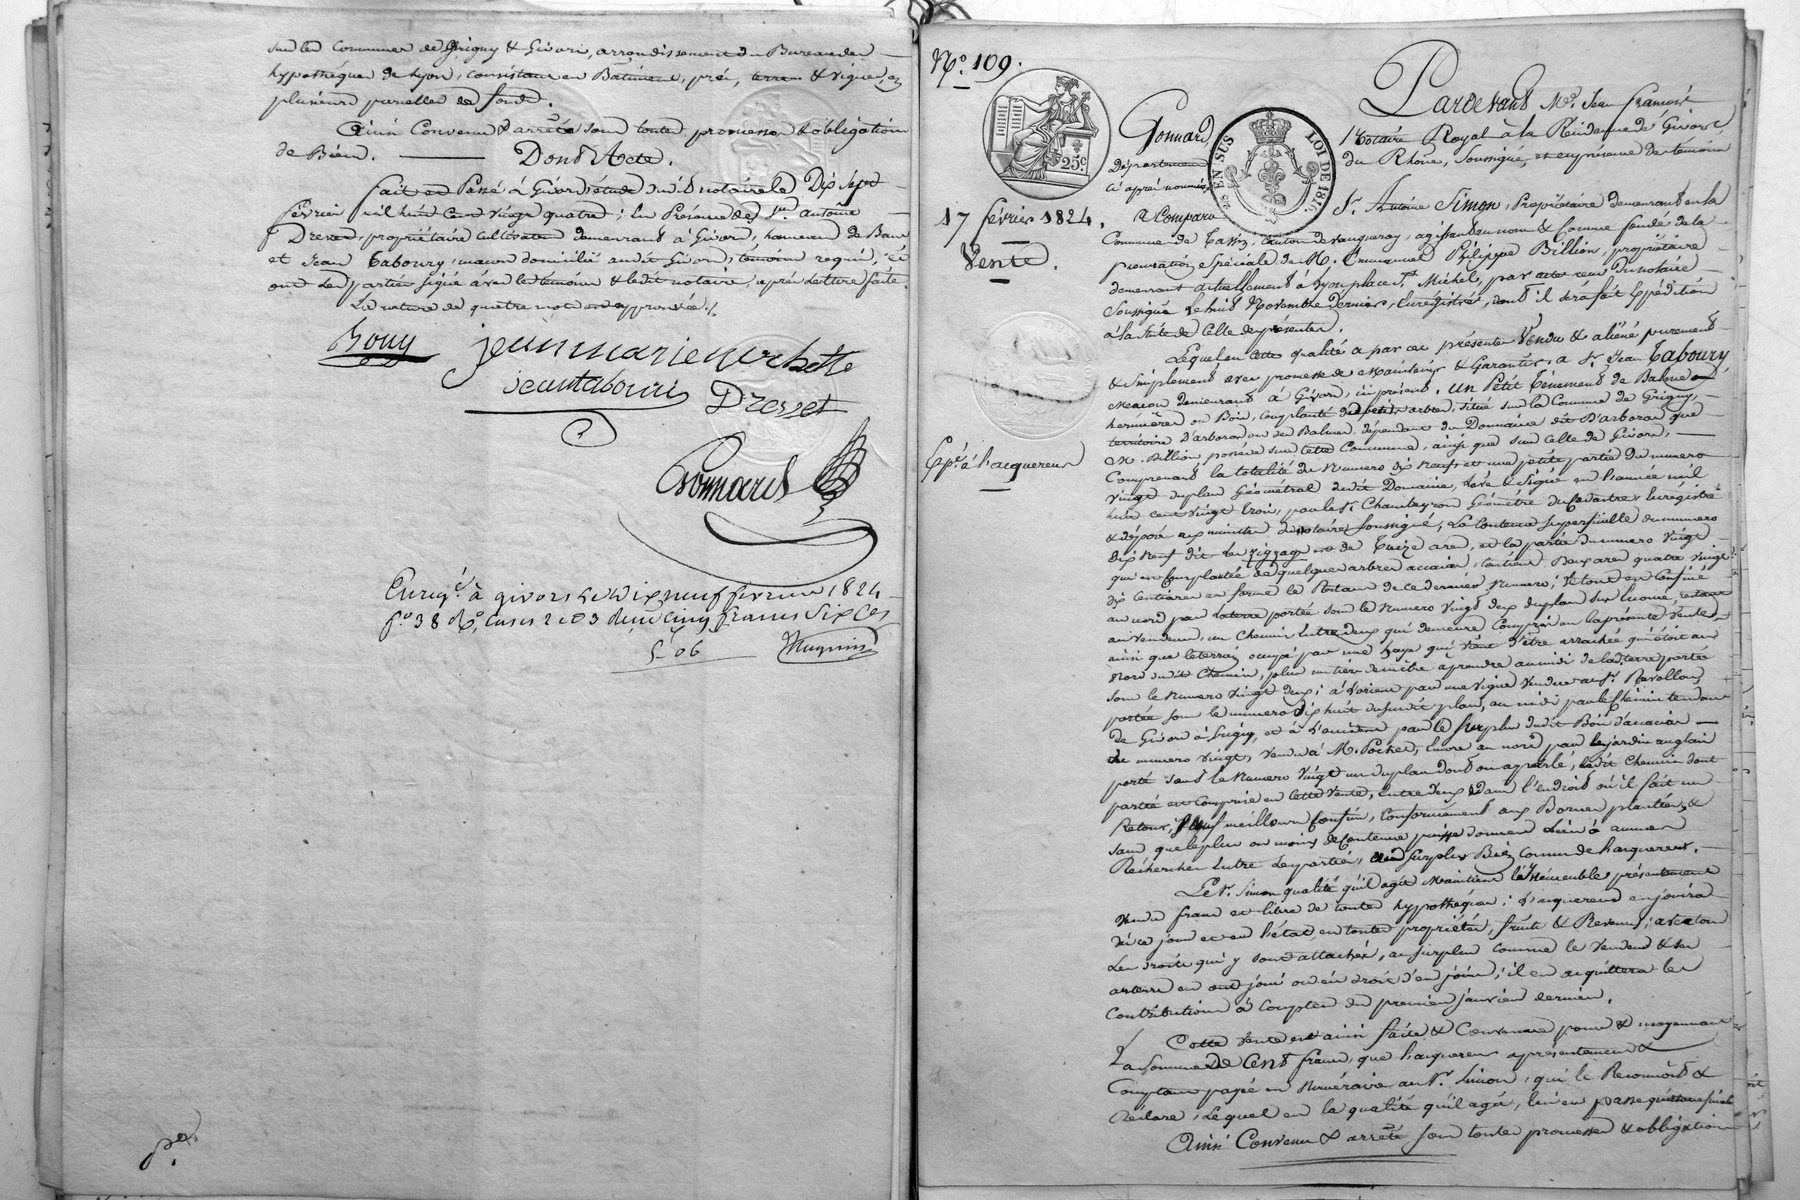 sur les Communes de Grigny & Givors, arrondissement du Bureau des
hypothèques de Lyon, consistant en Bâtiment, prés, terres & vignes, en
plusieurs parcelles de fonds.
Ainsi Convenu & arrêté sous toutes promesses & obligations
de Bien. Dont Acte.
fait et Passé à Givors étude dudit notaire le Dix Sept
février mil huit Cent vingt quatre; En Présence de Sr. antoine
Drevet, propriétaire cultivateur demeurant à Givors, hameau de Bans
et Jean Taboury, maçon domicilié audit Givors, témoins requis, et
ont les parties signé avec les témoins & ledit notaire, après lecture faite.
La rature de quatre mots est approuvée./.
Bouy
jean marie
jean tabouri Drevet
Gonnard
Enregé. à givors le dix neuf fevrier 1824
fo. 38 Ro. Cases 2 et 3 Reçu cinq francs Six Ces
5-06
No. 109.
Pardevant Me. Jean françois
Gonnard, Notaire Royal à la Résidence de Givors,
département du Rhône, Soussigné, et en présence des témoins
ci après nommés,
25c.
EN SUS
LOI DE 1816
17 février 1824.
Vente.
a Comparu Sr. Antoine Simon, Propriétaire demeurant en la
Commune de Tassin, Canton de vaugneray, agissant au nom & comme fondé de la
procuration Spéciale de M. Emmanuel Philippe Billion, propriétaire
demeurant actuellement à Lyon place St. Michel, par acte reçu du notaire
Soussigné le huit Novembre dernier, Enregistré, dont il sera fait Expédition
à la suite de Celle des présentes.
Lequel en cette qualité a par ces présentes Vendu & aliéné purement
& simplement avec promesse de maintenir & Garantir, à Sr. Jean Taboury
Maçon demeurant à Givors, ici présent, un Petit Ténement de Balmes
hermières ou Bois, Complanté de petits arbres, situé sur la Commune de Grigny,
territoire d'arboras ou des Balmes, dépendant du Domaine dit D'arboras que
M. Billion possède sur cette Commune, ainsi que sur Celle de Givors,
Expé. à l'acquereur
Comprenant la totalité du Numéro dix neuf, et une petite partie du numéro
vingt du plan Géométral dudit Domaine, Levé & Signé en l'année mil
huit cent vingt trois, par le Sr. Géométre du Cadastre, Enregistré
& déposé aux minutes du notaire soussigné, La Contenue superficielle du numéro
dix neuf dit les zigzags est de treize ares, et la partie du numéro vingt
qui est Complantée de quelques arbres accacias, contient Deux ares quatre vingt
dix Centiares en forme le Restant de ce dernier Numéro; Le tout est Confiné
au nord par la terre portée sous le Numéro Vingt deux du plan sus énoncé, restant
au vendeur, un Chemin Entre deux qui demeure Compris en la présente Vente,
ainsi que le terrein occupé par une haye qui vient d'être arrachée qui étoit au
Nord dudit Chemin, plus un tiers de mètre à prendre au midi de la dite terre portée
sous le Numéro Vingt deux; à l'orient par une Vigne Vendue au Sr. Ravollon,
portée sous le numéro dix huit dususdit plan, au midi par le Chemin tendant
de Givors à Grigny, et à l'occident par le surplus dudit Bois d'accacias
du numéro vingt, Vendu à M. Pochet, Encore en nord par le jardin anglais
porté sous le Numéro Vingt un du plan dont on a parlé, ledit Chemin dont
partie est Comprise en cette Vente, Entre deux dans l'endroit où il fait un
Retour, Sauf meilleurs Confins, Conformément aux Bornes plantées, &
sans que le plus ou moins de Contenue puisse donner Lieu à aucunes
Recherches Entre les parties, au surplus Bien Connu de l'acquereur.
Le Sr. Simon qualité qu'il agit Maintient l'Immeuble présentement
Vendu franc et libre de toutes hypothéques; L'acquereur en jouira
dès ce jour et en l'état, en toutes propriétés, fruits & Revenus, avec tous
Les droits qui y sont attachés, au surplus comme le Vendeur & ses
auteurs en ont joui ou eu droit d'en jouir; il en acquittera les
Contributions à Compter du premier janvier dernier.
Cette Vente est ainsi faite & Convenue pour & moyennant
La Somme de Cent francs, que l'acquereur a présentement &
Comptant payée en Numéraire au Sr. Simon, qui le Reconnoit &
Déclare, Lequel en la qualité qu'il agit, lui en passe quittance finale
Ainsi Convenu & arrêté sous toutes promesses & obligations